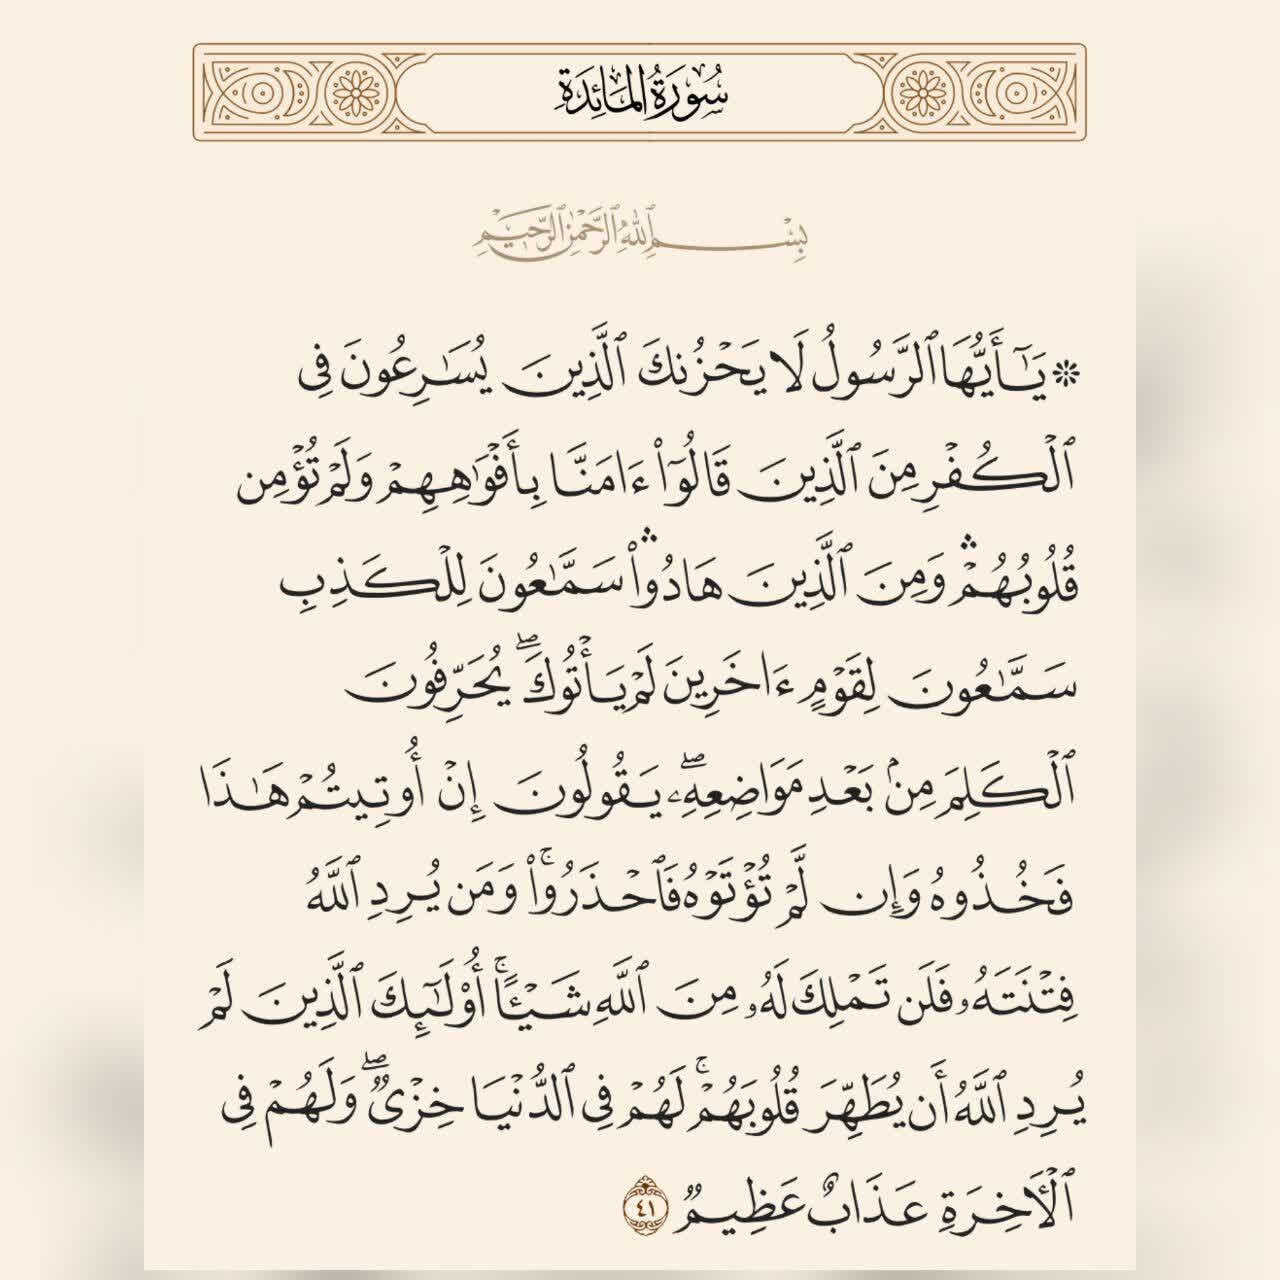 سُورَةُ المَائِدَة
بِسْمِ ٱللَّهِ ٱلرَّحْمَٰنِ ٱلرَّحِيمِ
۞ يَٰٓأَيُّهَا ٱلرَّسُولُ لَا يَحْزُنكَ ٱلَّذِينَ يُسَٰرِعُونَ فِي
ٱلْكُفْرِ مِنَ ٱلَّذِينَ قَالُوٓا۟ ءَامَنَّا بِأَفْوَٰهِهِمْ وَلَمْ تُؤْمِن
قُلُوبُهُمْ ۛ وَمِنَ ٱلَّذِينَ هَادُوا۟ ۛ سَمَّٰعُونَ لِلْكَذِبِ
سَمَّٰعُونَ لِقَوْمٍ ءَاخَرِينَ لَمْ يَأْتُوكَ ۖ يُحَرِّفُونَ
ٱلْكَلِمَ مِنۢ بَعْدِ مَوَاضِعِهِۦ ۖ يَقُولُونَ إِنْ أُوتِيتُمْ هَٰذَا
فَخُذُوهُ وَإِن لَّمْ تُؤْتَوْهُ فَٱحْذَرُوا۟ ۚ وَمَن يُرِدِ ٱللَّهُ
فِتْنَتَهُۥ فَلَن تَمْلِكَ لَهُۥ مِنَ ٱللَّهِ شَيْـًٔا ۚ أُو۟لَٰٓئِكَ ٱلَّذِينَ لَمْ
يُرِدِ ٱللَّهُ أَن يُطَهِّرَ قُلُوبَهُمْ ۚ لَهُمْ فِي ٱلدُّنْيَا خِزْيٌ ۖ وَلَهُمْ فِي
ٱلْأَخِرَةِ عَذَابٌ عَظِيمٌ ٤١